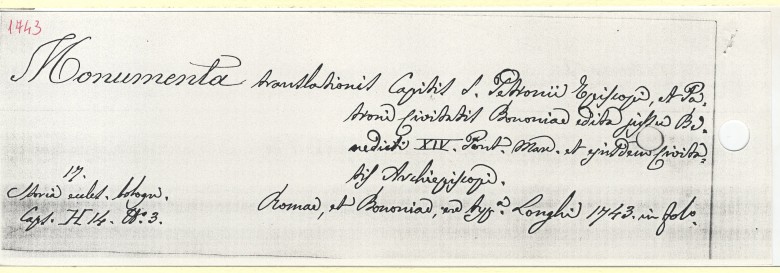 1743
Monumenta translationis Capitis S. Petronii Episcopi, et Pa-
troni Civitatis Bononiae edita jussu Be-
nedicti XIV. Pont. Max. et ejusdem Civita-
tis Archiepiscopi.
17.
Storia eccles. bologn.
Caps. H 14. N.º 3.
Romae, et Bononiae, ex typ.ª Longhi 1743. in fol.º